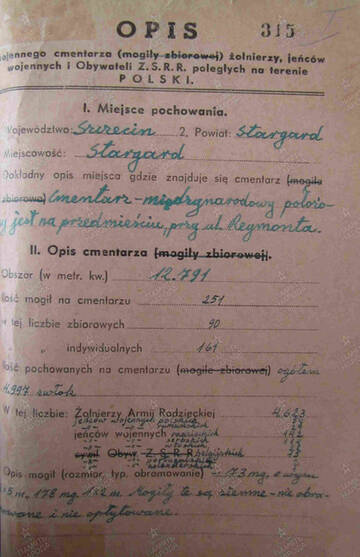 OPIS 315
wojennego cmentarza (mogiły zbiorowej) żołnierzy, jeńców
wojennych i Obywateli Z.S.R.R. poległych na terenie
POLSKI.
I. Miejsce pochowania.
Województwo: Szczecin 2. Powiat: Stargard
Miejscowość: Stargard
Dokładny opis miejsca gdzie znajduje się cmentarz (mogiła
zbiorowa) Cmentarz - międzynarodowy, położo-
ny jest na przedmieściu, przy ul. Reymonta.
II. Opis cmentarza (mogiły zbiorowej).
Obszar (w metr. kw.) 12.791
Ilość mogił na cmentarzu 251
w tej liczbie zbiorowych 90
" indywidualnych 161
Ilość pochowanych na cmentarzu (mogile zbiorowej) ogółem
4.997 zwłok
W tej liczbie: Żołnierzy Armij Radzieckiej 4.623
jeńców wojennych polskich
jeńców wojennych
serbskich
cywil Obyw. Z.S.R.R. belgijskich
Opis mogił (rozmiar, typ, obramowanie) - 73 mg. o wym
m, 178 mg. m. Mogiły te są ziemne - nie obra-
mowane i nie opłytowane.